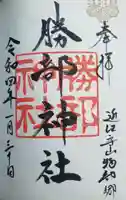 奉拝
近江守山物部郷
勝部神社
勝部
神社
令和四年一月三十日